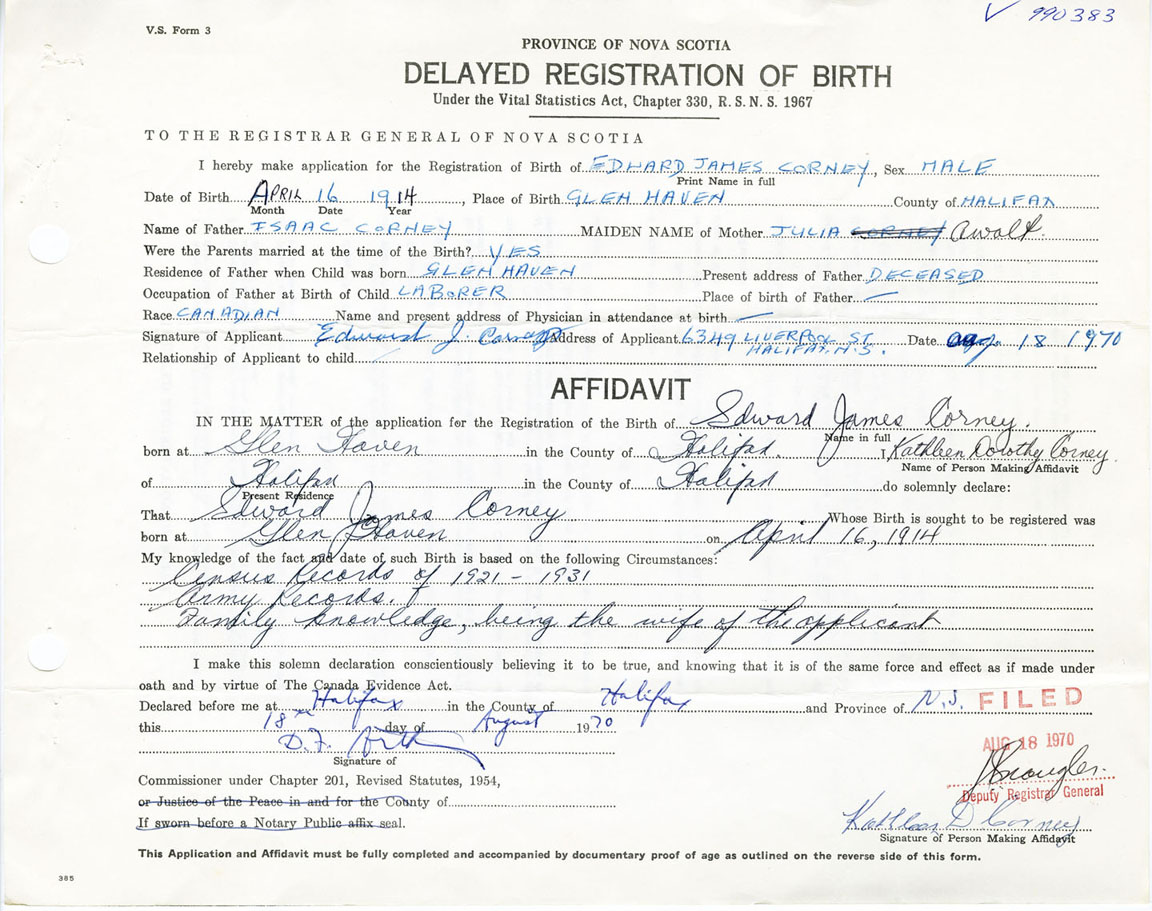 V.S. Form 3
√ 990383
PROVINCE OF NOVA SCOTIA
DELAYED REGISTRATION OF BIRTH
Under the Vital Statistics Act, Chapter 330, R. S. N. S. 1967
TO THE REGISTRAR GENERAL OF NOVA SCOTIA
I hereby make application for the Registration of Birth of EDWARD JAMES CORNEY, Sex MALE
Print Name in full
Date of Birth APRIL 16 1914, Place of Birth GLEN HAVEN County of HALIFAX
Month Date Year
Name of Father ISAAC CORNEY MAIDEN NAME of Mother JULIA CORNEY Awalt.
Were the Parents married at the time of the Birth? YES
Residence of Father when Child was born GLEN HAVEN Present address of Father DECEASED
Occupation of Father at Birth of Child LABORER Place of birth of Father —
Race CANADIAN Name and present address of Physician in attendance at birth —
Signature of Applicant Edward J. Corney Address of Applicant 6349 LIVERPOOL ST. Date Aug. 18 1970
HALIFAX. N.S.
Relationship of Applicant to child
AFFIDAVIT
IN THE MATTER of the application for the Registration of the Birth of Edward James Corney.
Name in full
born at Glen Haven in the County of Halifax. I Kathleen Dorothy Corney
Name of Person Making Affidavit
of Halifax in the County of Halifax do solemnly declare:
Present Residence
That Edward James Corney Whose Birth is sought to be registered was
born at Glen Haven on April 16, 1914
My knowledge of the fact and date of such Birth is based on the following Circumstances:
Census Records of 1921 - 1931
Army Records.
Family knowledge, being the wife of the applicant
I make this solemn declaration conscientiously believing it to be true, and knowing that it is of the same force and effect as if made under
oath and by virtue of The Canada Evidence Act.
Declared before me at Halifax in the County of Halifax and Province of N.S.
FILED
this 18th day of August 1970
AUG 18 1970
D.F.
Signature of
Commissioner under Chapter 201, Revised Statutes, 1954,
Deputy Registrar General
or Justice of the Peace in and for the County of
Kathleen D Corney
If sworn before a Notary Public affix seal.
Signature of Person Making Affidavit
This Application and Affidavit must be fully completed and accompanied by documentary proof of age as outlined on the reverse side of this form.
385